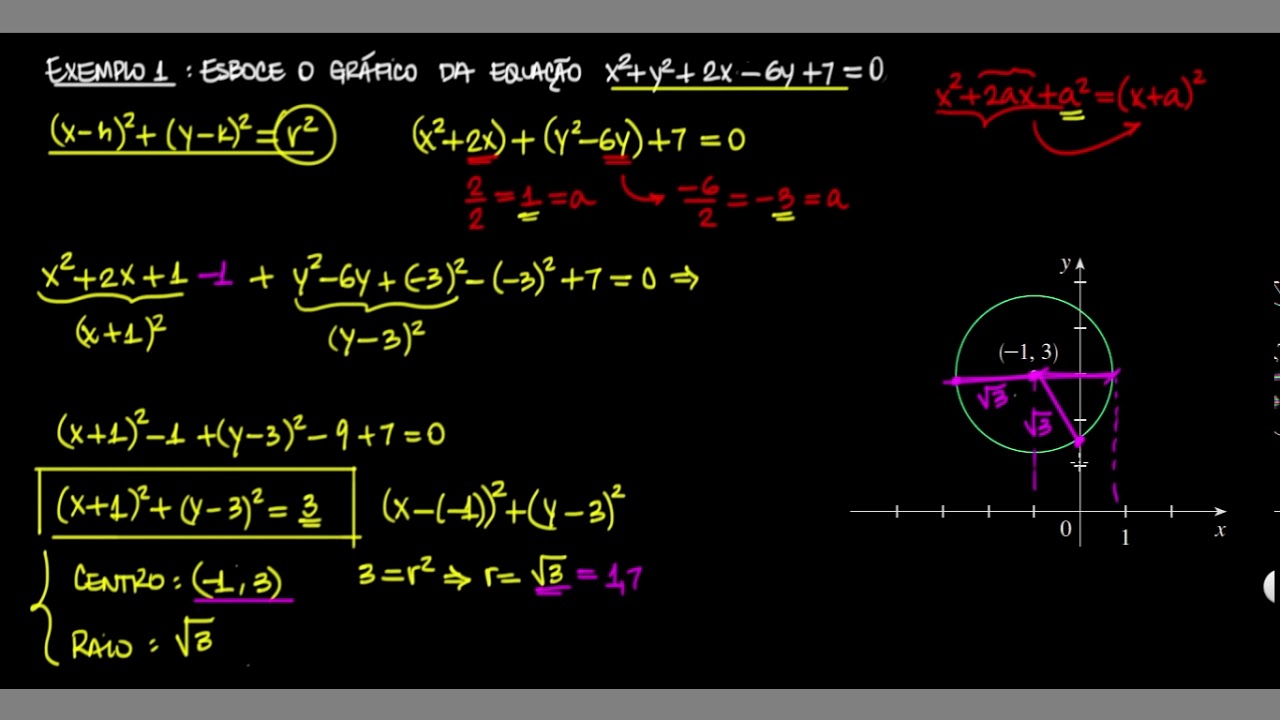 EXEMPLO 1 : ESBOCE O GRÁFICO DA EQUAÇÃO x²+y²+2x−6y+7=0
x²+2ax+a²=(x+a)²
(x−h)²+(y−k)²=r²
(x²+2x)+(y²−6y)+7=0
2/2=1=a
−6/2=−3=a
x²+2x+1−1 + y²−6y+(−3)²−(−3)²+7=0 ⇒
(x+1)² (y−3)²
(x+1)²−1+(y−3)²−9+7=0
(x+1)²+(y−3)²=3
(x−(−1))²+(y−3)²
CENTRO: (−1,3)
3=r² ⇒ r=√3=1,7
RAIO: √3
y
(−1, 3)
√3
√3
0 1 x